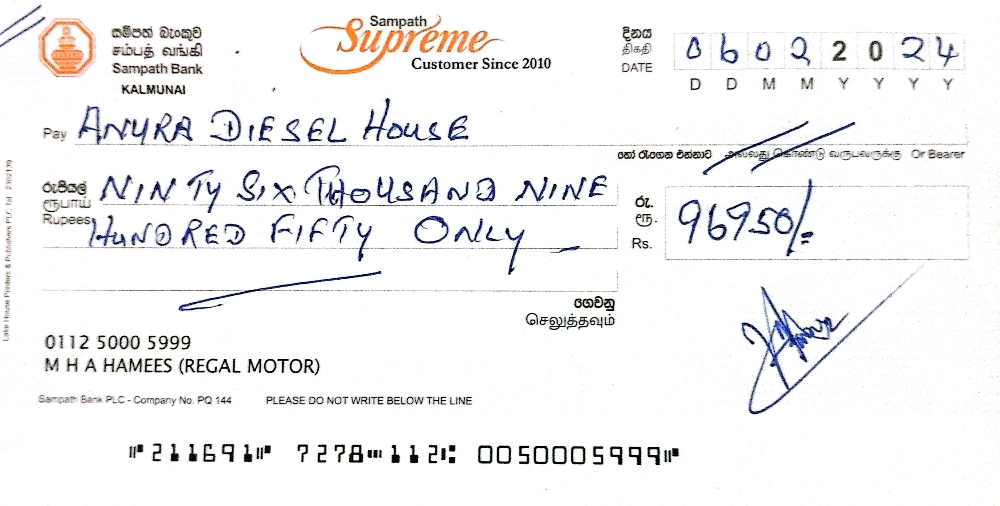 සම්පත් බැංකුව
சம்பத் வங்கி
Sampath Bank
KALMUNAI
Sampath
Supreme
Customer Since 2010
දිනය
திகதி
DATE
06022024
D D M M Y Y Y Y
Pay ANURA DIESEL HOUSE
හෝ රැගෙන එන්නාට அல்லது கொண்டு வருபவருக்கு Or Bearer
රුපියල්
ரூபாய்
Rupees
NINTY SIX THOUSAND NINE
HUNDRED FIFTY ONLY
රු.
ரூ.
Rs.
96950/-
ගෙවනු
செலுத்தவும்
0112 5000 5999
M H A HAMEES (REGAL MOTOR)
Sampath Bank PLC - Company No. PQ 144 PLEASE DO NOT WRITE BELOW THE LINE
⑈211691⑈ 7278⑉112⑆ 0050005999⑈
Lake House Printers & Publishers PLC